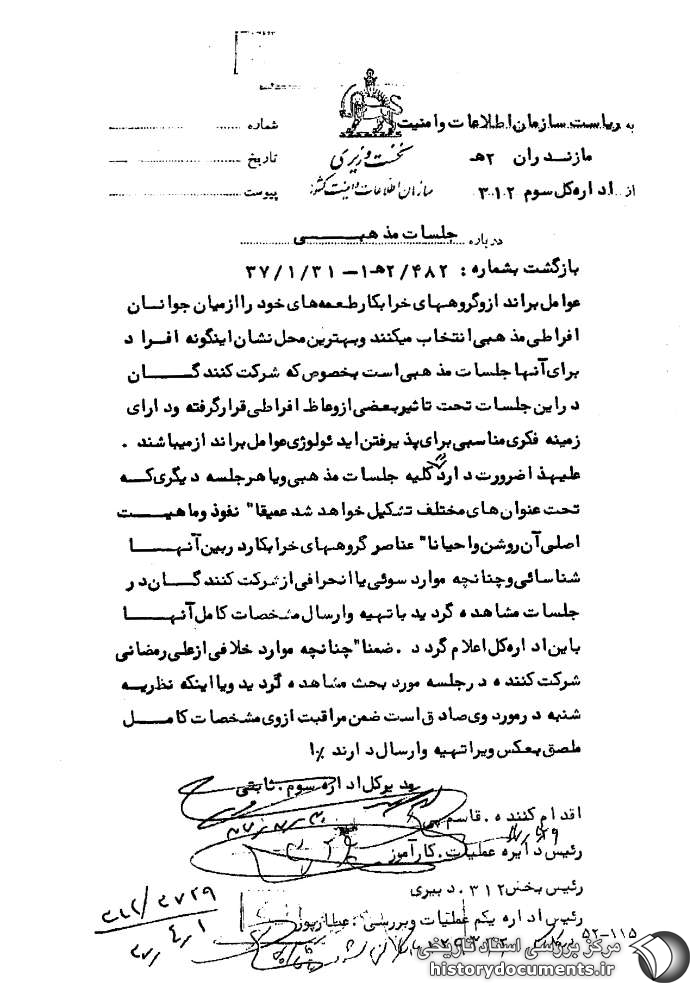 به ریاست سازمان اطلاعات و امنیت
مازندران ۲هـ
از اداره کل سوم ۳۰۱۲
نخست وزیری
سازمان اطلاعات و امنیت کشور
شماره
تاریخ
پیوست
درباره جلسات مذهبی
بازگشت بشماره : ۲/۴۸۲هـ۱ – ۳۷/۱/۳۱
عوامل برانداز و گروههای خرابکار طعمه‌های خود را از میان جوانان
افراطی مذهبی انتخاب میکنند و بهترین محل نشان اینگونه افراد
برای آنها جلسات مذهبی است بخصوص که شرکت کنندگان
در این جلسات تحت تاثیر بعضی از وعاظ افراطی قرار گرفته و دارای
زمینه فکری مناسبی برای پذیرفتن ایدئولوژی عوامل برانداز میباشند .
علیهذا ضرورت دارد کلیه جلسات مذهبی و یا هر جلسه دیگری که
تحت عنوان های مختلف تشکیل خواهد شد عمیقا" نفوذ و ماهیت
اصلی آن روشن و احیانا" عناصر گروههای خرابکار در بین آنها
شناسائی و چنانچه موارد سوئی یا انحرافی از شرکت کنندگان در
جلسات مشاهده گردید با تهیه و ارسال مشخصات کامل آنها
باین اداره کل اعلام گردد . ضمنا" چنانچه موارد خلافی از علی رمضانی
شرکت کننده در جلسه مورد بحث مشاهده گردید و یا اینکه نظریه
شنبه در مورد وی صادق است ضمن مراقبت از وی مشخصات کامل
ملصق بعکس ویرا تهیه و ارسال دارند ٪ا
مدیر کل اداره سوم . ثابتی
اقدام کننده . قاسمی
رئیس دایره عملیات . کارآموز
رئیس بخش ۳۱۲ . دبیری
رئیس اداره یکم عملیات و بررسی . عطارپور
۵۲-۱۱۵
مرکز بررسی اسناد تاریخی
historydocuments.ir